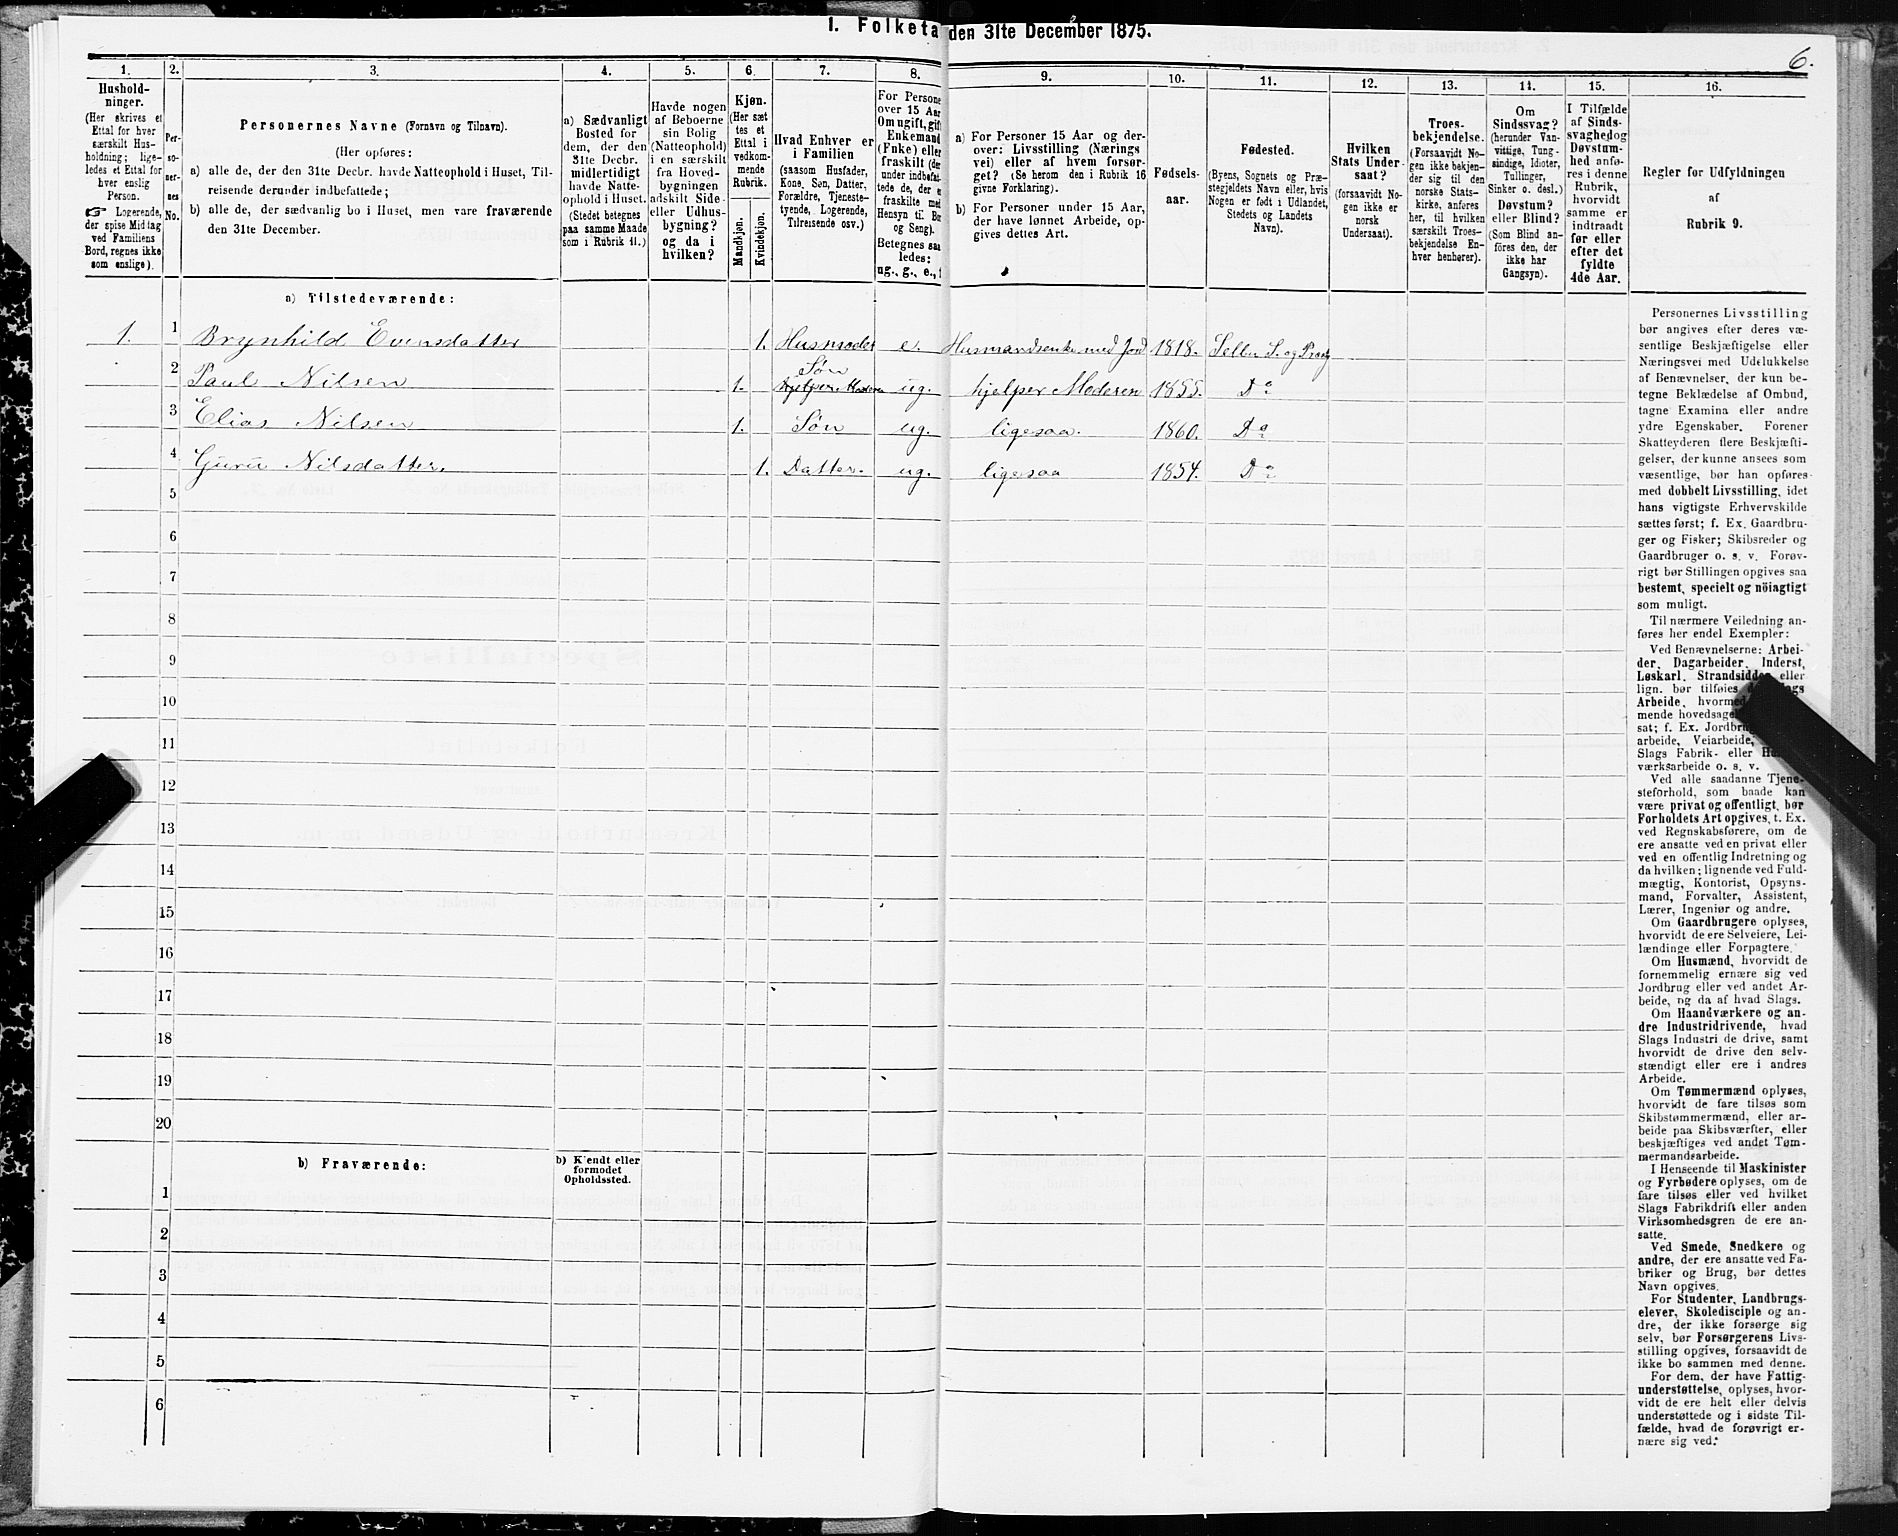 I. Folketa den 31te December 1875.
6.
1. 2. 3. 4. 5. 6. 7. 8. 9. 10. 11. 12. 13. 14. 15. 16.
Hushold-
ninger.
(Her skrives et
Ettal for hver
særskilt Hus-
holdning; lige-
ledes et Ettal for
hver enslig
Person.
☞ Logerende,
der spise Middag
ved Familiens
Bord, regnes ikke
som enslige).
Per-
so-
ner-
nes
No.
Personernes Navne (Fornavn og Tilnavn).
(Her opføres:
a) alle de, der den 31te Decbr. havde Natteophold i Huset, Til-
reisende derunder indbefattede;
b) alle de, der sædvanlig bo i Huset, men vare fraværende
den 31te December.
a) Sædvanligt
Bosted for
dem, der den
31te Decbr.
midlertidigt
havde Natte-
ophold i Huset.
(Stedet betegnes
paa samme Maade
som i Rubrik 11.)
Havde nogen
af Beboerne
sin Bolig
(Natteophold)
i en særskilt
fra Hoved-
bygningen
adskilt Side-
eller Udhus-
bygning?
og da i
hvilken?
Kjøn.
(Her sæt-
tes et
Ettal i
vedkom-
mende
Rubrik.
Mandkjøn.
Kvindekjøn.
Hvad Enhver er
i Familien
(saasom Husfader,
Kone, Søn, Datter,
Forældre, Tjeneste-
tyende, Logerende,
Tilreisende osv.)
For Persone
over 15 Aar
Om ugift, gift
Enkemand
(Enke) eller
fraskilt (der-
under indbefat-
tede de, der e
fraskilte med
Hensyn til Bo
og Seng).
Betegnes saa-
ledes:
ug., g., e., f
a) For Personer 15 Aar og der-
over: Livsstilling (Nærings
vei) eller af hvem forsør-
get? (Se herom den i Rubrik 16
givne Forklaring).
b) For Personer under 15 Aar,
der have lønnet Arbeide, op-
gives dettes Art.
Fødsels-
aar.
Fødested.
(Byens, Sognets og Præ-
stegjeldets Navn eller, hvis
Nogen er født i Udlandet,
Stedets og Landets
Navn).
Hvilken
Stats Under-
saat?
(forsaavidt No-
gen ikke er
norsk
Undersaat).
Troes-
bekjendelse.
(Forsaavidt No-
gen ikke bekjen-
der sig til den
norske Stats-
kirke, anføres
her, til hvilken
særskilt Troes-
bekjendelse En-
hver henhører).
Om
Sindssvag?
(herunder Van-
vittige, Tung-
sindige, Idioter,
Tullinger,
Sinker o. desl.)
Døvstum?
eller Blind?
(Som Blind an-
føres den, der
ikke har
Gangsyn).
I Tilfælde
af Sinds-
svaghed og
Døvstum-
hed anfø-
res i denne
Rubrik,
hvorvidt
samme er
indtraadt
før eller
efter det
fyldte
4de Aar.
Regler for Udfyldningen
af
Rubrik 9.
a) Tilstedeværende:
1. 1 Brynhild Evensdatter 1. Husmoder e. Husmandsenke med Jord 1818. Selbu S. og Præstg
Søn
2 Paul Nilsen 1. hjelper Moderen ug. hjelper Moderen 1855. Do
3 Elias Nilsen 1. Søn ug. ligesaa. 1860. Do
4 Guru Nilsdatter. 1. Datter. ug. ligesaa 1854. Do
5
6
7
8
9
10
11
12
13
14
15
16
17
18
19
20
b) Fraværende:
b) Kjendt eller
formodet
Opholdssted.
1
2
3
4
5
6
Personernes Livsstilling
bør angives efter deres væ-
sentlige Beskjæftigelse eller
Næringsvei med Udelukkelse
af Benævnelser, der kun be-
tegne Beklædelse af Ombud,
tagne Examina eller andre
ydre Egenskaber. Forener
Skatteyderen flere Beskjæfti-
gelser, der kunne ansees som
væsentlige, bør han opføres
med dobbelt Livsstilling, idet
hans vigtigste Erhvervskilde
sættes først; f. Ex. Gaardbru-
ger og Fisker; Skibsreder og
Gaardbruger o. s. v. Forøv-
rigt bør Stillingen opgives saa
bestemt, specielt og nöiagtigt
som muligt.
Til nærmere Veiledning an-
føres her endel Exempler:
Ved Benævnelserne: Arbei-
der, Dagarbeider, Inderst,
Løskarl, Strandsidder eller
lign. bør tilføies
Arbeide, hvormed
mende hovedsagel
sat; f. Ex. Jordbru
arbeide, Veiarbeide,
Slags Fabrik- eller
værksarbeide o. s. v.
Ved alle saadanne Tjene-
steforhold, som baade kan
være privat og offentligt, bør
Forholdets Art opgives, t. Ex.
ved Regnskabsførere, om de
ere ansatte ved en privat eller
ved en offentlig Indretning og
da hvilken; lignende ved Fuld-
mægtig, Kontorist, Opsyns-
mand, Forvalter, Assistent,
Lærer, Ingeniør og andre.
Om Gaardbrugere oplyses,
hvorvidt de ere Selveiere, Lei-
lændinge eller Forpagtere.
Om Husmænd, hvorvidt de
fornemmelig ernære sig ved
Jordbrug eller ved andet Ar-
beide, og da af hvad Slags.
Om Haandværkere og an-
dre Industridrivende, hvad
Slags Industri de drive, samt
hvorvidt de drive den selv-
stændigt eller ere i andres
Arbeide.
Om Tømmermænd oplyses,
hvorvidt de fare tilsøs som
Skibstømmermænd, eller ar-
beide paa Skibsværfter, eller
beskjæftiges ved andet Tøm-
mermandsarbeide.
I Henseende til Maskinister
og Fyrbødere oplyses, om de
fare tilsøs eller ved hvilket
Slags Fabrikdrift eller anden
Virksomhedsgren de ere an-
satte.
Ved Smede, Snedkere og
andre, der ere ansatte ved Fa-
briker og Brug, bør dettes
Navn opgives.
For Studenter, Landbrugs-
elever, Skoledisciple og an-
dre, der ikke forsørge sig
selv, bør Forsørgerens Livs-
stilling opgives, forsaavidt de
ikke bo sammen med denne.
For dem, der have Fattig-
understøttelse, oplyses, hvor-
vidt de ere helt eller delvis
understøttede og i sidste Til-
fælde, hvad de forøvrigt er-
nære sig ved.